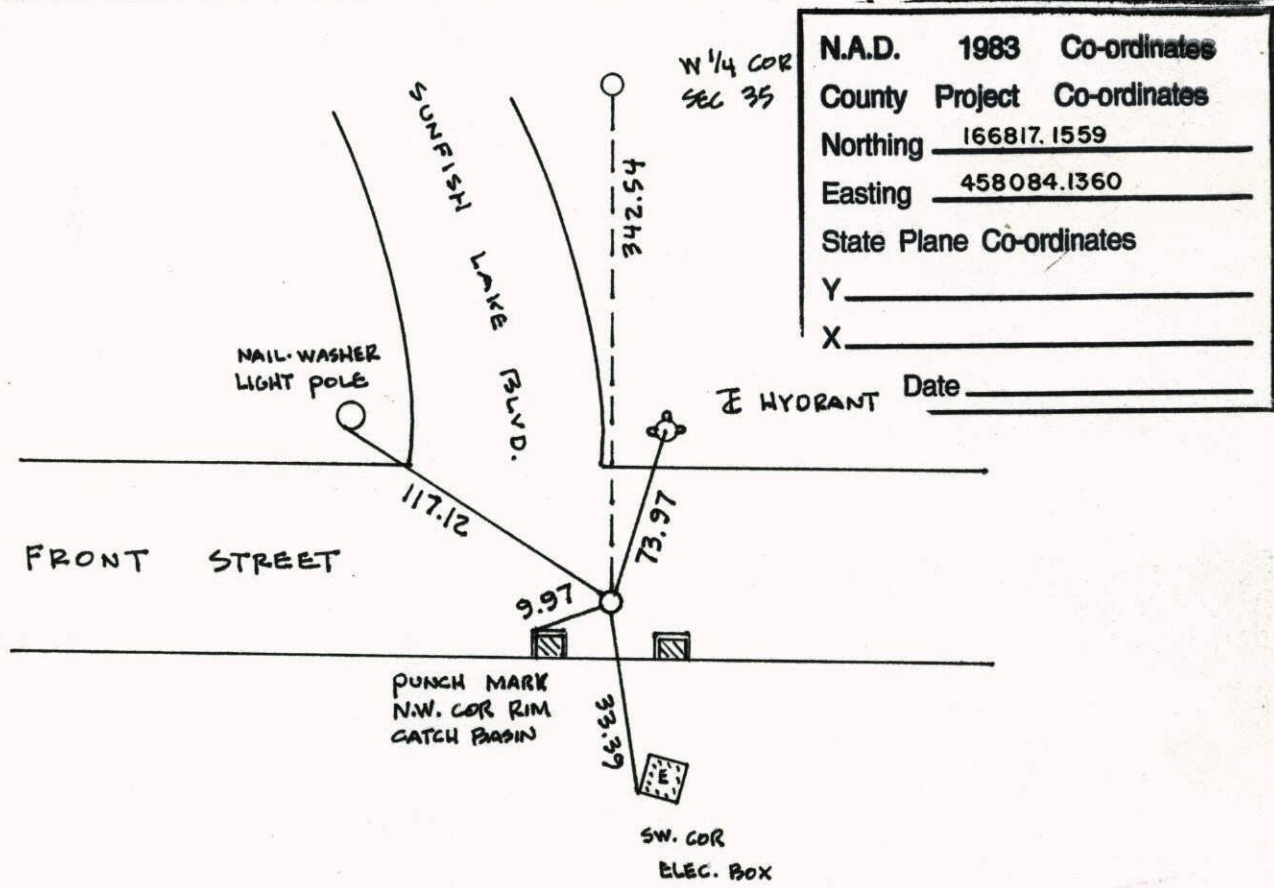 N.A.D. 1983 Co-ordinates
County Project Co-ordinates
Northing 166817.1559
Easting 458084.1360
State Plane Co-ordinates
Y
X
Date
W 1/4 COR
SEC 35
SUNFISH LAKE BLVD.
342.54
NAIL-WASHER
LIGHT POLE
HYDRANT
117.12
73.97
FRONT STREET
9.97
PUNCH MARK
N.W. COR RIM
CATCH BASIN
33.39
E
SW. COR
ELEC. BOX